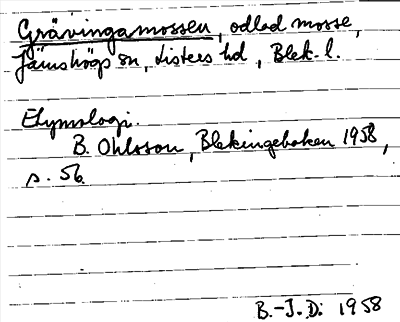 Grävingamossen, odlad mosse,
Jämshögs sn, Listers hd, Blek. l.
Etymologi.
B. Ohlsson, Blekingeboken 1958,
s. 56.
B.-J.D. 1958